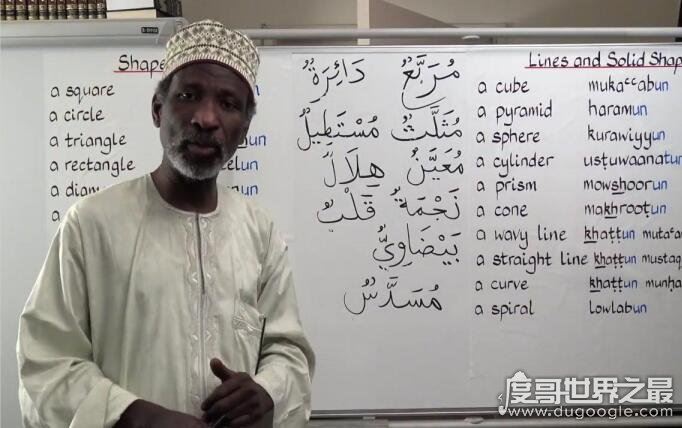 Shape
a square un
a circle
a triangle un
a rectangle un
a diam un
a
مُرَبَّعٌ دَائِرَةٌ
مُثَلَّثٌ مُسْتَطِيلٌ
مُعَيَّنٌ هِلَالٌ
نَجْمَةٌ قَلْبٌ
بَيْضَاوِيٌّ
مُسَدَّسٌ
Lines and Solid Shap
a cube mukaʿʿabun
a pyramid haramun
a sphere kurawiyyun
a cylinder usṭuwaanatun
a prism mowshoorun
a cone makhrooṭun
a wavy line khaṭṭun mutaʿa
a straight line khaṭṭun mustaq
a curve khaṭṭun munḥa
a spiral lowlabun
度哥世界之最
www.dugoogle.com